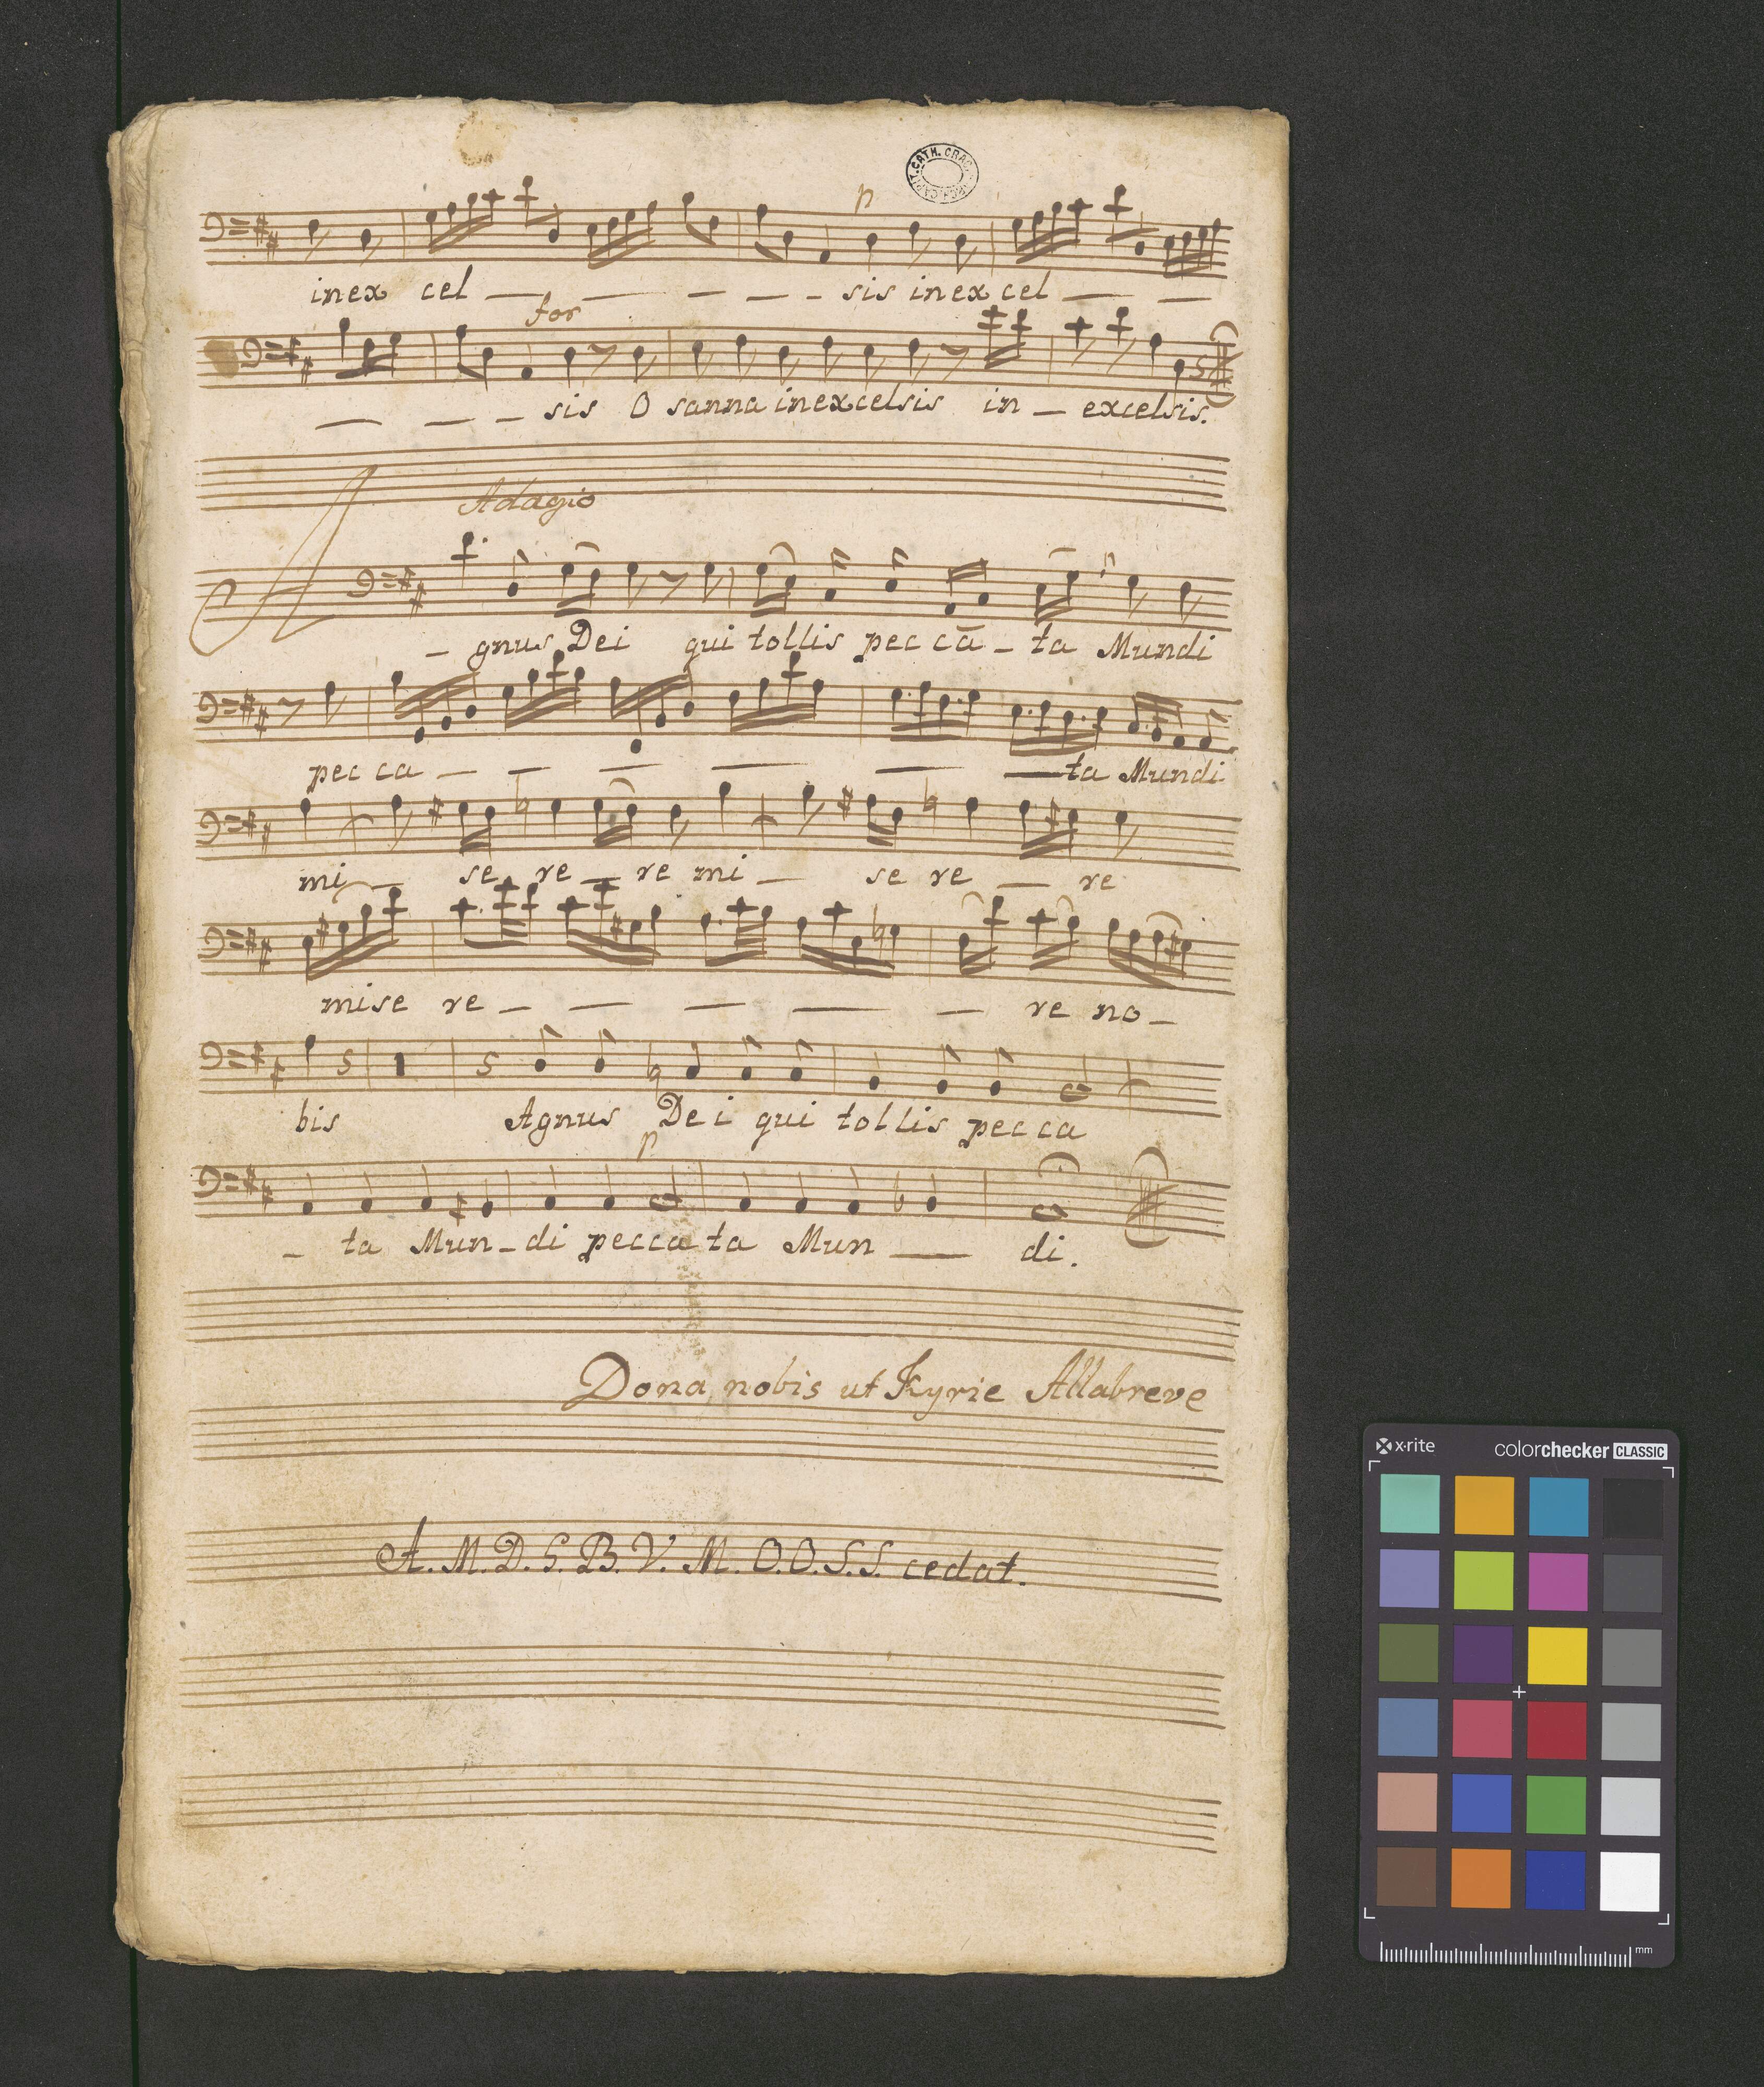 ARCH. CAPIT. CATH. CRAC.
p
inex cel — — — — - sis inex cel — —
for
— — - sis O sanna inexcelsis in — excelsis.
Adagio
A - gnus Dei qui tollis pec cā - ta Mundi
pec ca — — — — — — ta Mundi
mi — se re — re mi — se re — re
mise re — — — — — re no -
bis Agnus Dei qui tollis pec ca
p
- ta Mun - di pecca ta Mun — di.
Dona nobis ut Kyrie Allabreve
A. M. D. G. B. V. M. O. O. S. S. cedat.
x·rite colorchecker CLASSIC
mm